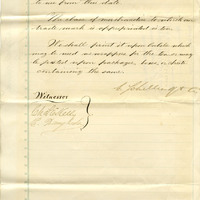 to us from this date.
The class of merchandise to which this
trade mark is appropriated is tea.
We shall print it upon labels which
may be used as wrappers for the tea or may
be pasted upon packages, boxes, or chests
containing the same.
Witnesses